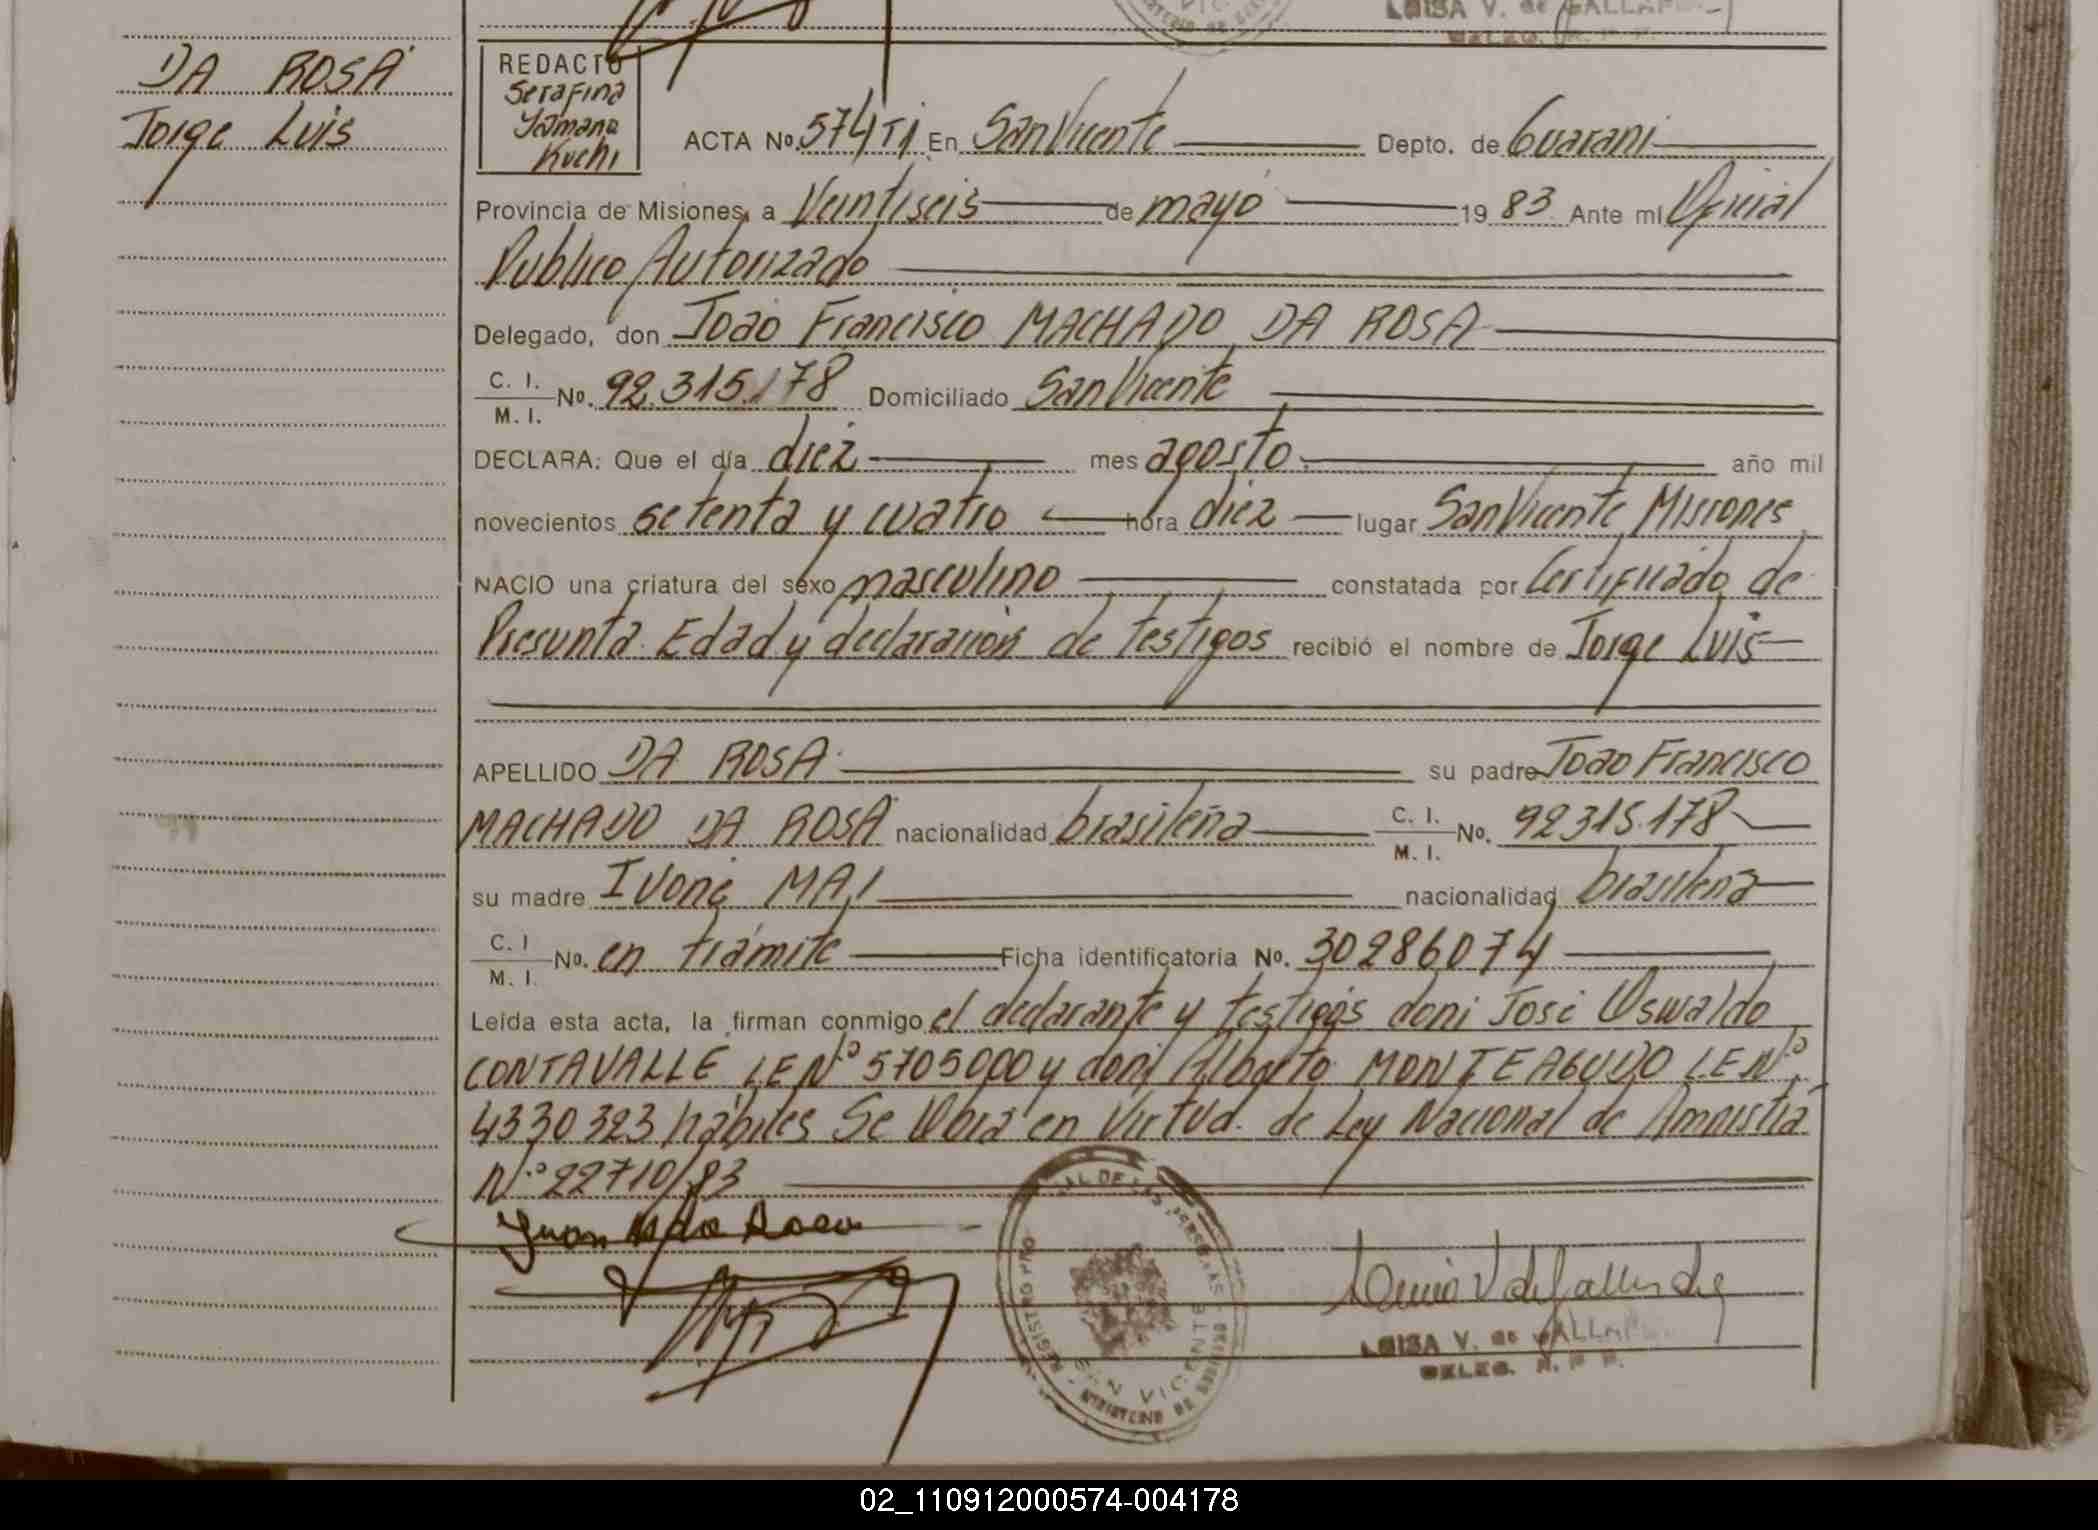 LUISA V. de GALLAR
DELEG. R. P. P.
DA ROSA
Jorge Luis
REDACTO
Serafina
Yamana
Kuchi
ACTA No. 574 T1 En San Vicente Depto. de Guarani
Provincia de Misiones, a Veintiseis de mayo 19 83 Ante mi Oficial
Publico Autorizado
Delegado, don Joao Francisco MACHADO DA ROSA
C. I.
M. I. No. 92.315.178 Domiciliado San Vicente
DECLARA: Que el día diez mes agosto año mil
novecientos setenta y cuatro hora diez lugar San Vicente Misiones
NACIO una criatura del sexo masculino constatada por Certificado de
Presunta Edad y declaración de testigos recibió el nombre de Jorge Luis
APELLIDO DA ROSA su padre Joao Francisco
MACHADO DA ROSA nacionalidad brasileña C. I.
M. I. No. 92315.178
su madre Ivone MAI nacionalidad brasileña
C. I
M. I. No. en trámite Ficha identificatoria No. 30286074
Leída esta acta, la firman conmigo el declarante y testigos don: José Oswaldo
CONTAVALLE LE Nº 5705000 y don: Alberto MONTEAGUDO LE Nº
4330323 hábiles Se Obra en Virtud de Ley Nacional de Amnistia
Nº 22710/83
Juan M da Rosa
REGISTRO PRO AL DE LAS PERSONAS
SAN VICENTE
MINISTERIO DE GOBIERNO
LUISA V. de GALLAR
DELEG. R. P. P.
02_110912000574-004178